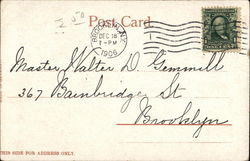 Post Card
BROOKLYN, N.Y.
DEC 18
1-PM
1906
Master Walter D. Gemmill
367 Bainbridge St
Brooklyn
THIS SIDE FOR ADDRESS ONLY.